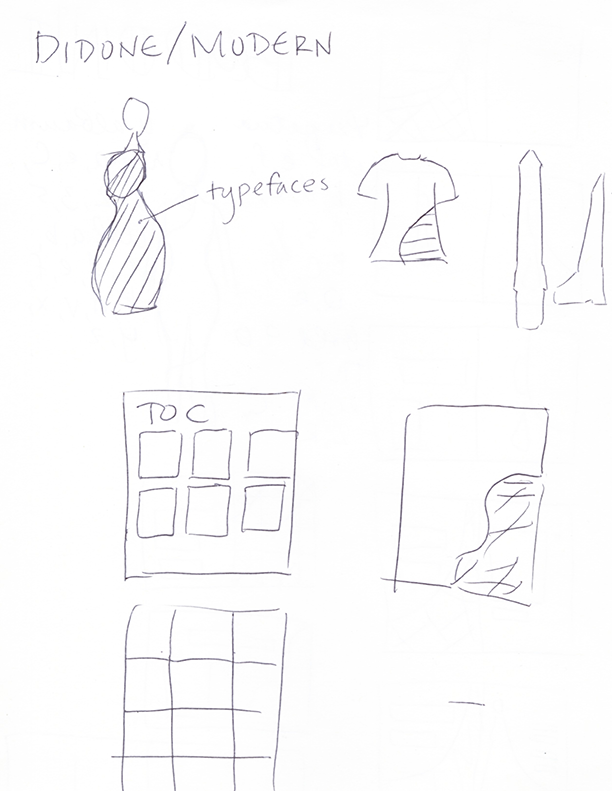 DIDONE/MODERN
typefaces
TOC